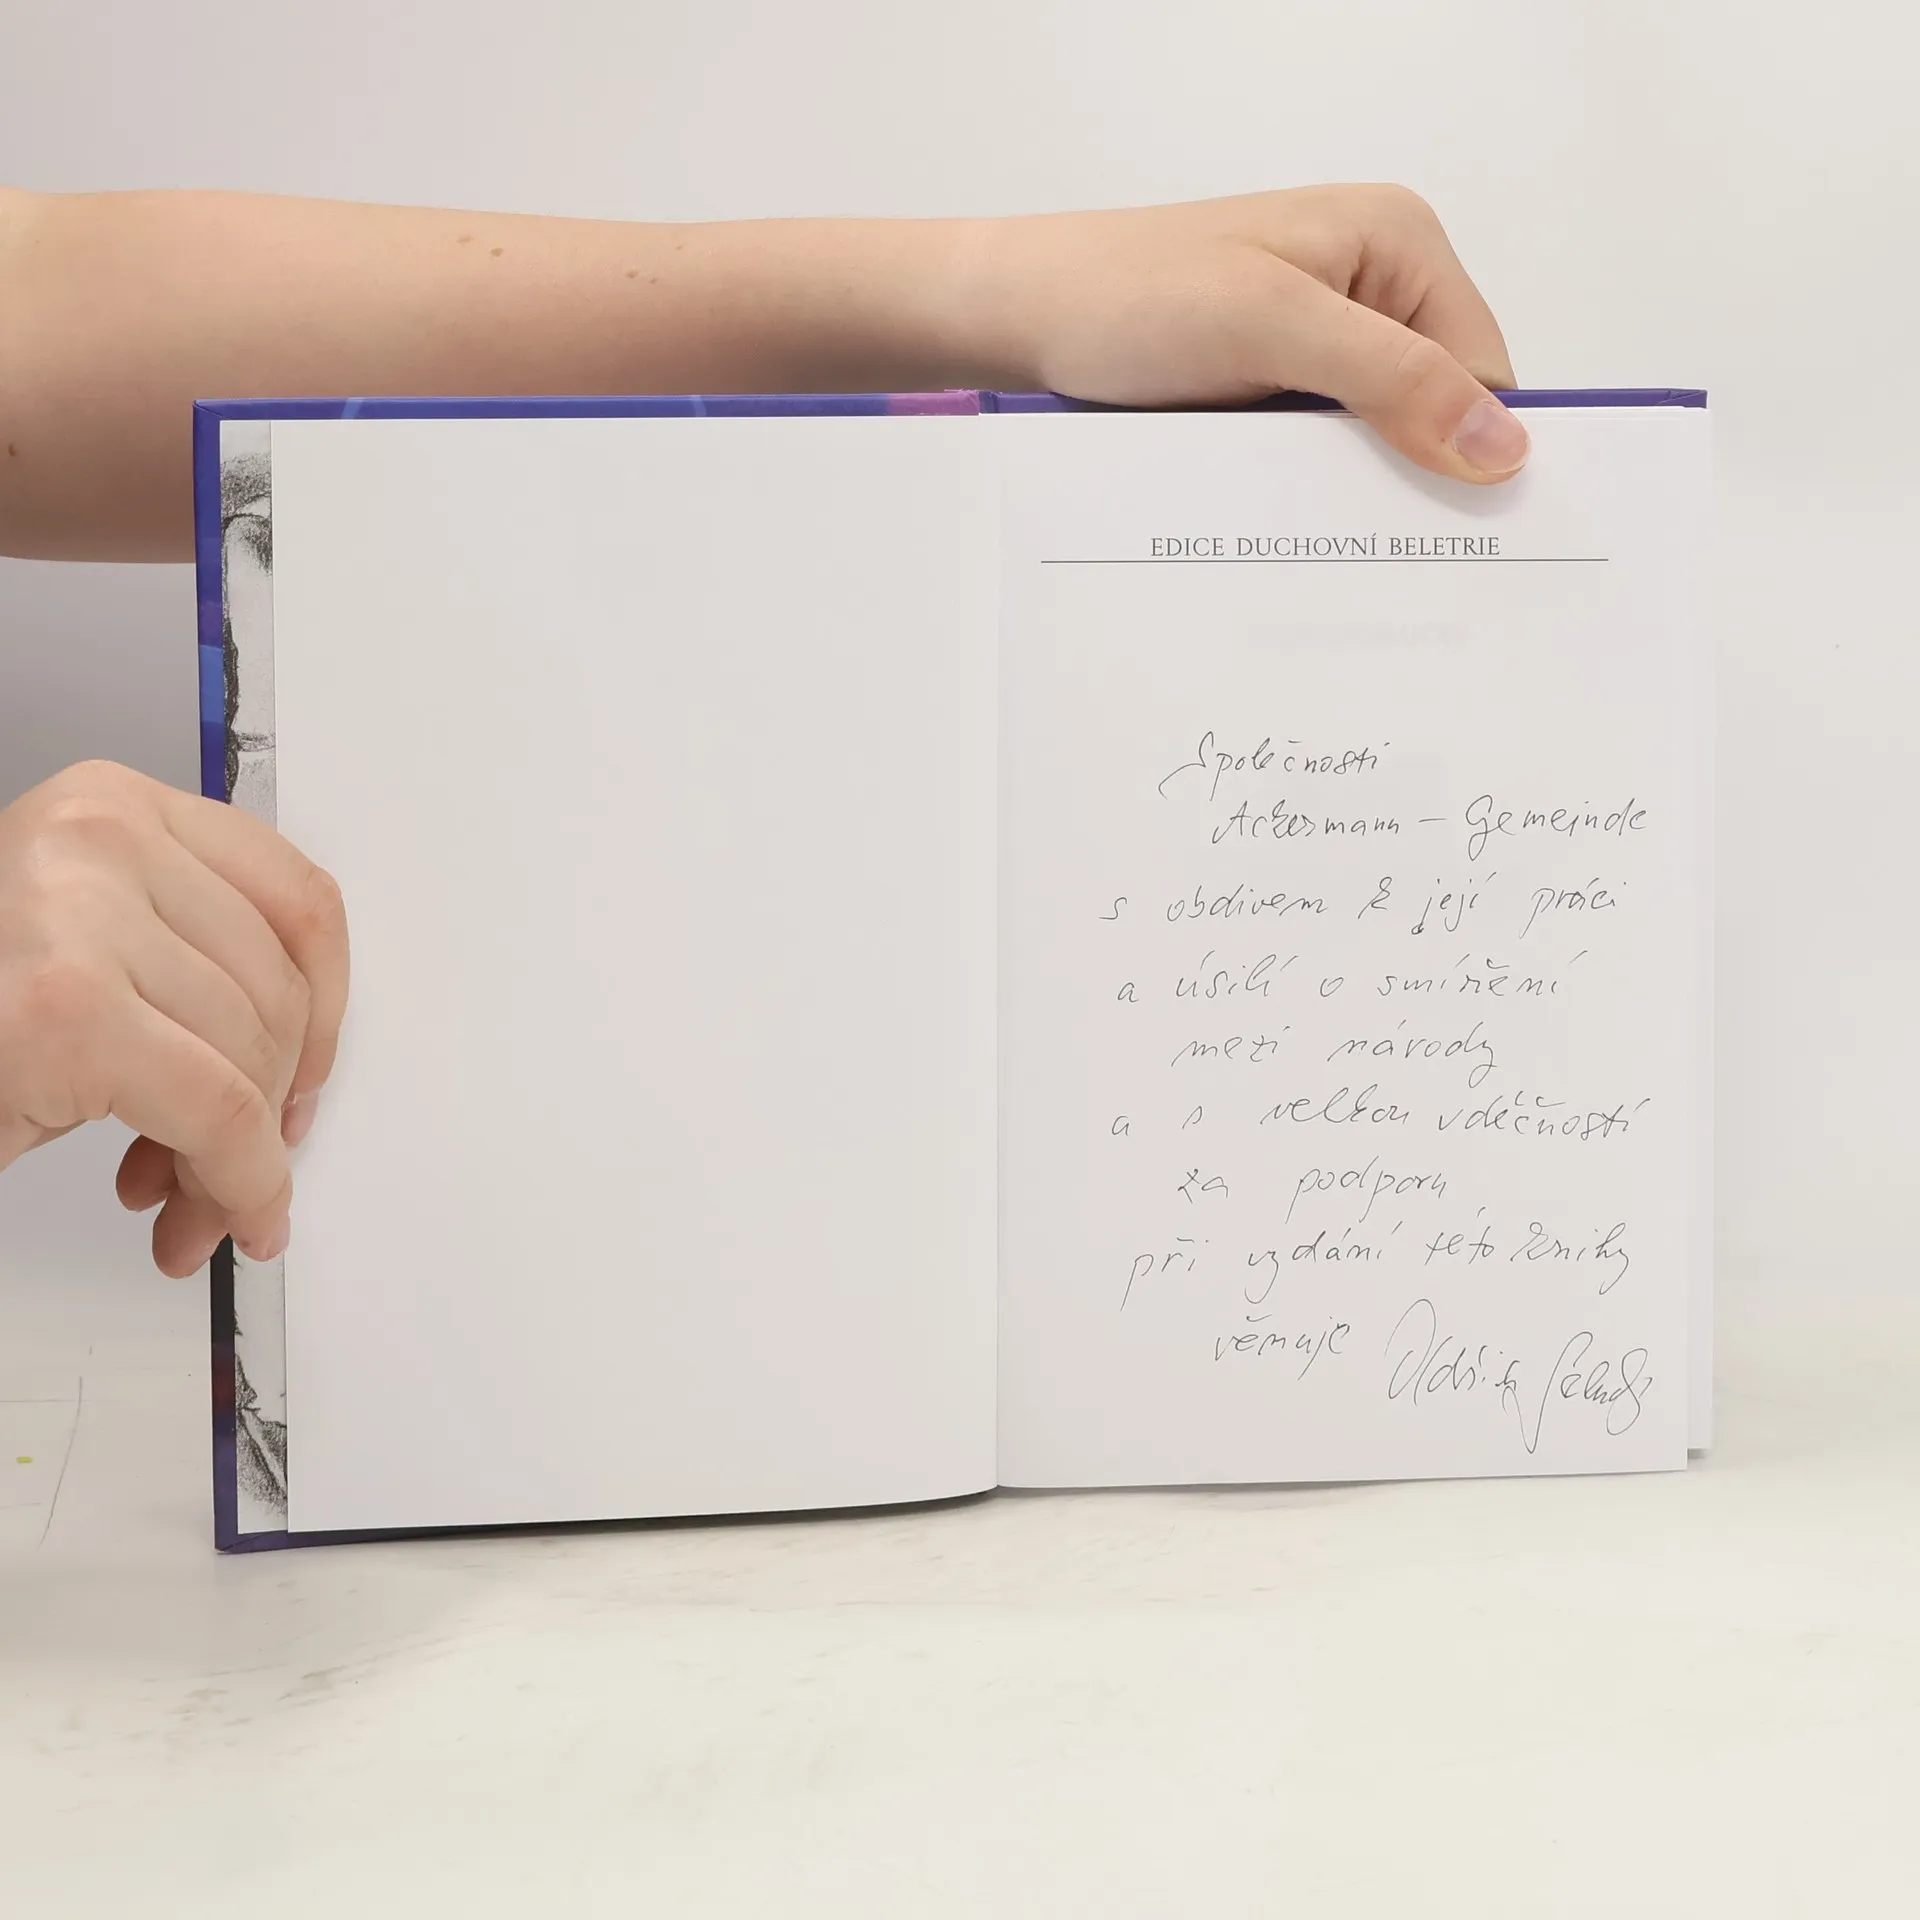 EDICE DUCHOVNÍ BELETRIE
Společnosti
Ackermann - Gemeinde
s obdivem k její práci
a úsilí o smíření
mezi národy
a s velkou vděčností
za podporu
při vydání této knihy
věnuje Oldřich Selucký